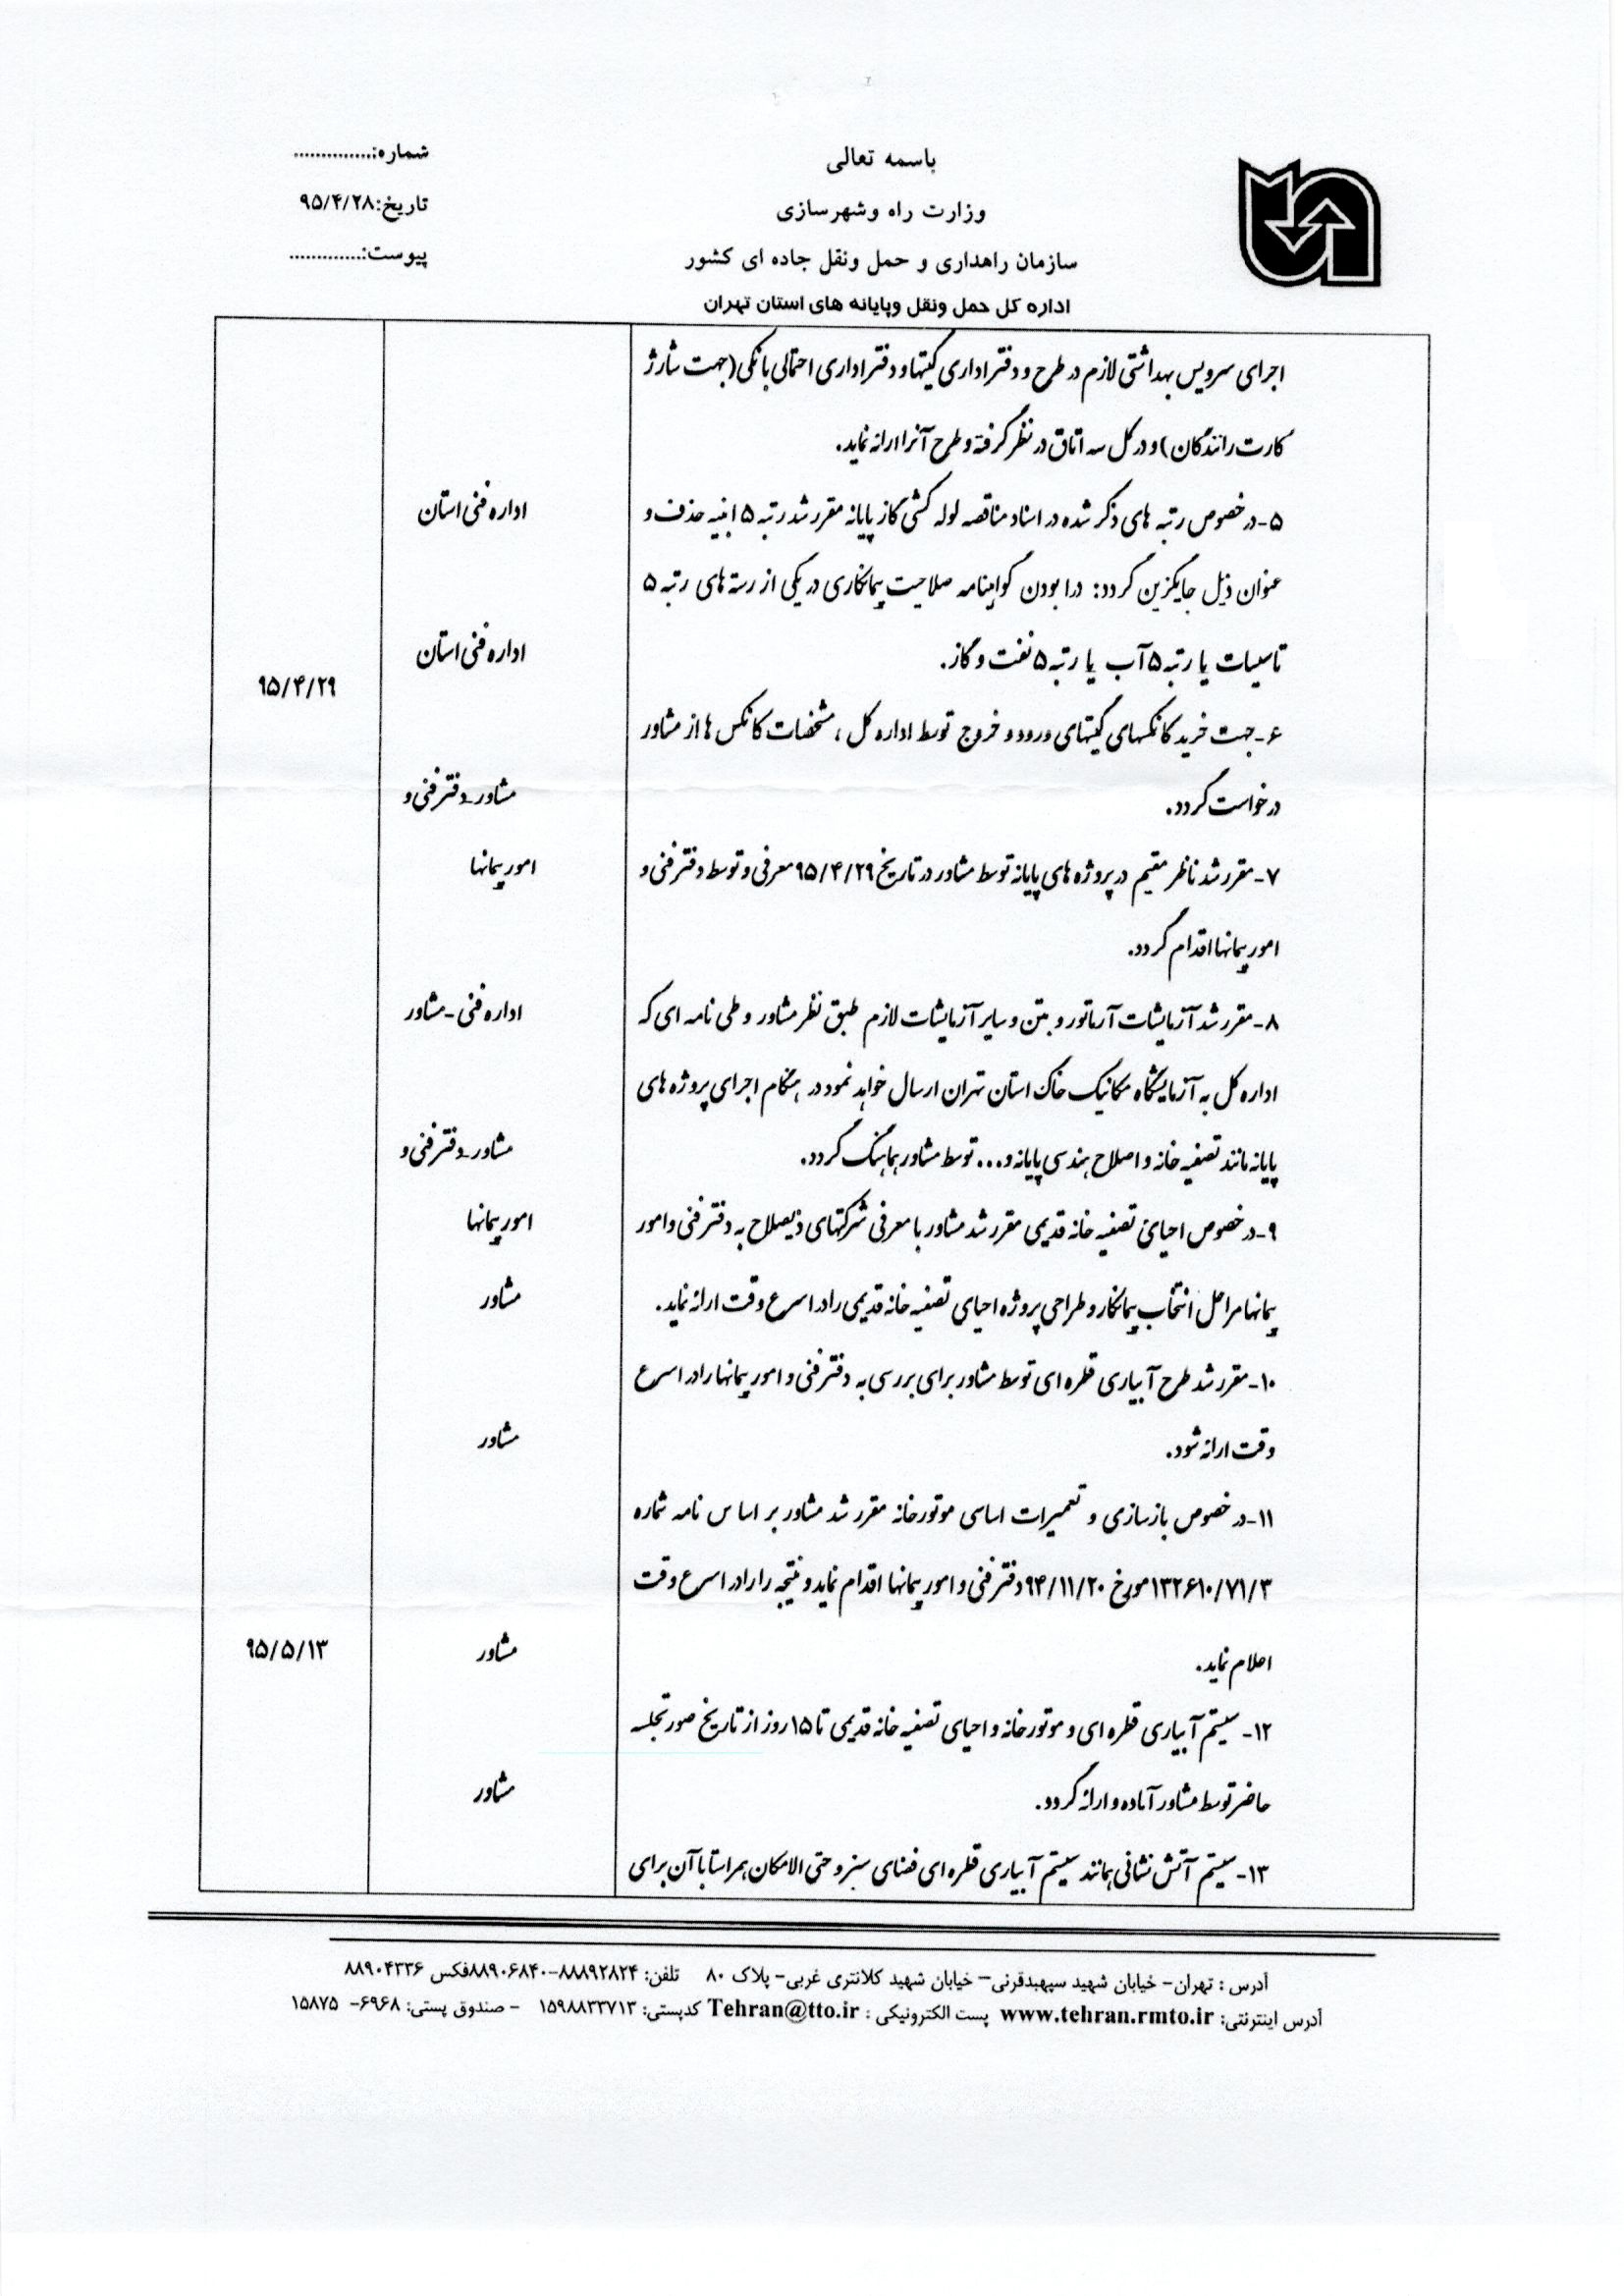 باسمه تعالی
وزارت راه وشهرسازی
سازمان راهداری و حمل ونقل جاده ای کشور
اداره کل حمل ونقل وپایانه های استان تهران
شماره:..............
تاریخ:۹۵/۴/۲۸
پیوست:.............
اجرای سرویس بهداشتی لازم در طرح و دفتر اداری گیتها و دفتر اداری احتمالی بانکی(جهت شارژ
کارت رانندگان) و در کل سه اتاق در نظر گرفته و طرح آنرا ارائه نماید.
۵-در خصوص رتبه های ذکر شده در اسناد مناقصه لوله کشی گاز پایانه مقرر شد رتبه ۵ ابنیه حذف و
عنوان ذیل جایگزین گردد: درا بودن گواهینامه صلاحیت پیمانکاری در یکی از رسته های رتبه ۵
تاسیسات یا رتبه ۵ آب یا رتبه ۵ نفت و گاز.
۶-جهت خرید کانکسهای گیتهای ورود و خروج توسط اداره کل ، مشخصات کانکس ها از مشاور
درخواست گردد.
۷-مقرر شد ناظر مقیم در پروژه های پایانه توسط مشاور در تاریخ ۹۵/۴/۲۹ معرفی و توسط دفتر فنی و
امور پیمانها اقدام گردد.
۸-مقرر شد آزمایشات آرماتور و بتن و سایر آزمایشات لازم طبق نظر مشاور و طی نامه ای که
اداره کل به آزمایشگاه مکانیک خاک استان تهران ارسال خواهد نمود در هنگام اجرای پروژه های
پایانه مانند تصفیه خانه و اصلاح هندسی پایانه و... توسط مشاور هماهنگ گردد.
۹-در خصوص احیائ تصفیه خانه قدیمی مقرر شد مشاور با معرفی شرکتهای ذیصلاح به دفتر فنی و امور
پیمانها مراحل انتخاب پیمانکار و طراحی پروژه احیای تصفیه خانه قدیمی را در اسرع وقت ارائه نماید.
۱۰-مقرر شد طرح آبیاری قطره ای توسط مشاور برای بررسی به دفتر فنی و امور پیمانها را در اسرع
وقت ارائه شود.
۱۱-در خصوص بازسازی و تعمیرات اساسی موتورخانه مقرر شد مشاور بر اساس نامه شماره
۱۳۲۶۱۰/۷۱/۳ مورخ ۹۴/۱۱/۲۰ دفتر فنی و امور پیمانها اقدام نماید و نتیجه را در اسرع وقت
اعلام نماید.
۱۲-سیستم آبیاری قطره ای و موتورخانه و احیای تصفیه خانه قدیمی تا ۱۵ روز از تاریخ صورتجلسه
حاضر توسط مشاور آماده و ارائه گردد.
۱۳-سیستم آتش نشانی همانند سیستم آبیاری قطره ای فضای سبز و حتی الامکان همراستا با آن برای
اداره فنی استان
اداره فنی استان
مشاور-دفتر فنی و
امور پیمانها
اداره فنی-مشاور
مشاور-دفتر فنی و
امور پیمانها
مشاور
مشاور
مشاور
مشاور
۹۵/۴/۲۹
۹۵/۵/۱۳
آدرس : تهران- خیابان شهید سپهبدقرنی- خیابان شهید کلانتری غربی- پلاک ۸۰ تلفن: ۸۸۸۹۲۸۲۴-۸۸۹۰۶۸۴۰فکس ۸۸۹۰۴۳۳۶
آدرس اینترنتی: www.tehran.rmto.ir پست الکترونیکی : Tehran@tto.ir کدپستی: ۱۵۹۸۸۳۳۷۱۳ - صندوق پستی: ۶۹۶۸- ۱۵۸۷۵